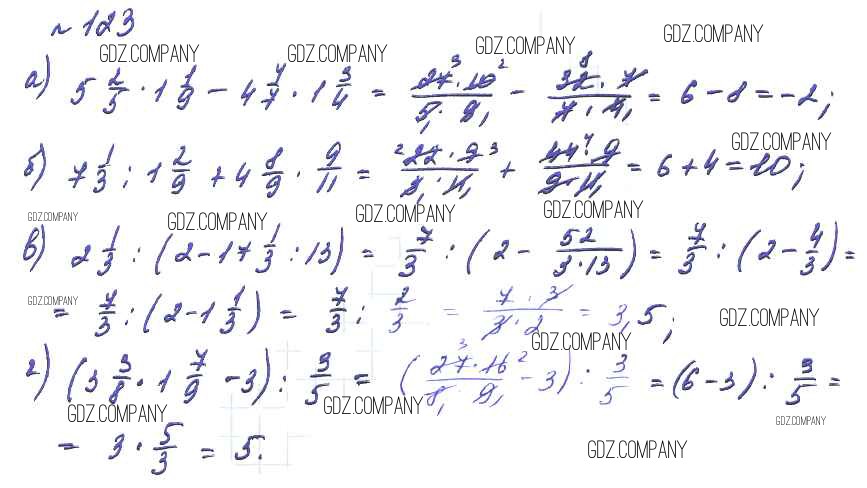 № 123
GDZ.COMPANY GDZ.COMPANY GDZ.COMPANY GDZ.COMPANY
а) 5 2/5 · 1 1/9 − 4 4/7 · 1 3/4 = 27·10/5·9 − 32·7/7·4 = 6 − 8 = −2;
GDZ.COMPANY
б) 7 1/3 : 1 2/9 + 4 8/9 · 9/11 = 22·9/3·11 + 44·9/9·11 = 6 + 4 = 10;
GDZ.COMPANY GDZ.COMPANY GDZ.COMPANY GDZ.COMPANY
в) 2 1/3 : (2 − 17 1/3 : 13) = 7/3 : (2 − 52/3·13) = 7/3 : (2 − 4/3) =
GDZ.COMPANY
= 7/3 : (2 − 1 1/3) = 7/3 : 2/3 = 7·3/3·2 = 3,5;
GDZ.COMPANY
GDZ.COMPANY
г) (3 3/8 · 1 7/9 − 3) : 3/5 = (27·16/8·9 − 3) : 3/5 = (6 − 3) : 3/5 =
GDZ.COMPANY GDZ.COMPANY GDZ.COMPANY
= 3 · 5/3 = 5.
GDZ.COMPANY